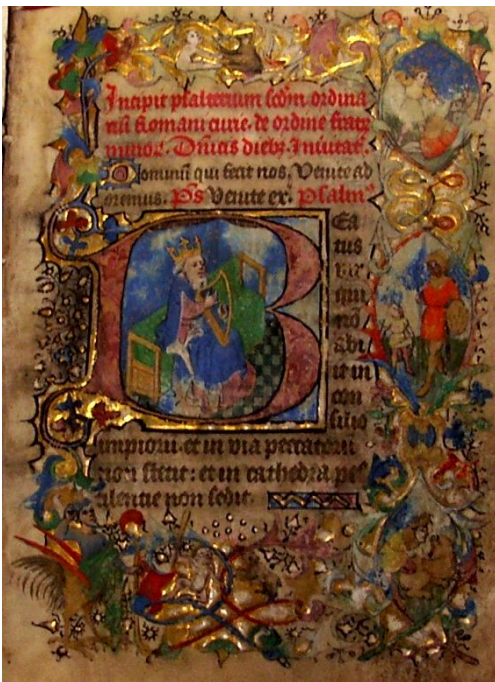 Incipit psalterium scdm ordina
nū Romani curie. de ordine fratꝝ
minoꝝ. Dnicis diebꝫ. Inuitat.
Dominū qui fecit nos. Venite ad
oremus. Ps Venite ex. Psalm⁹
BEa
tus
vir
qui
nō
abi
it in
con
silio
impioꝝ. et in via peccatoꝝ
non stetit: et in cathedra pes
tilentie non sedit.